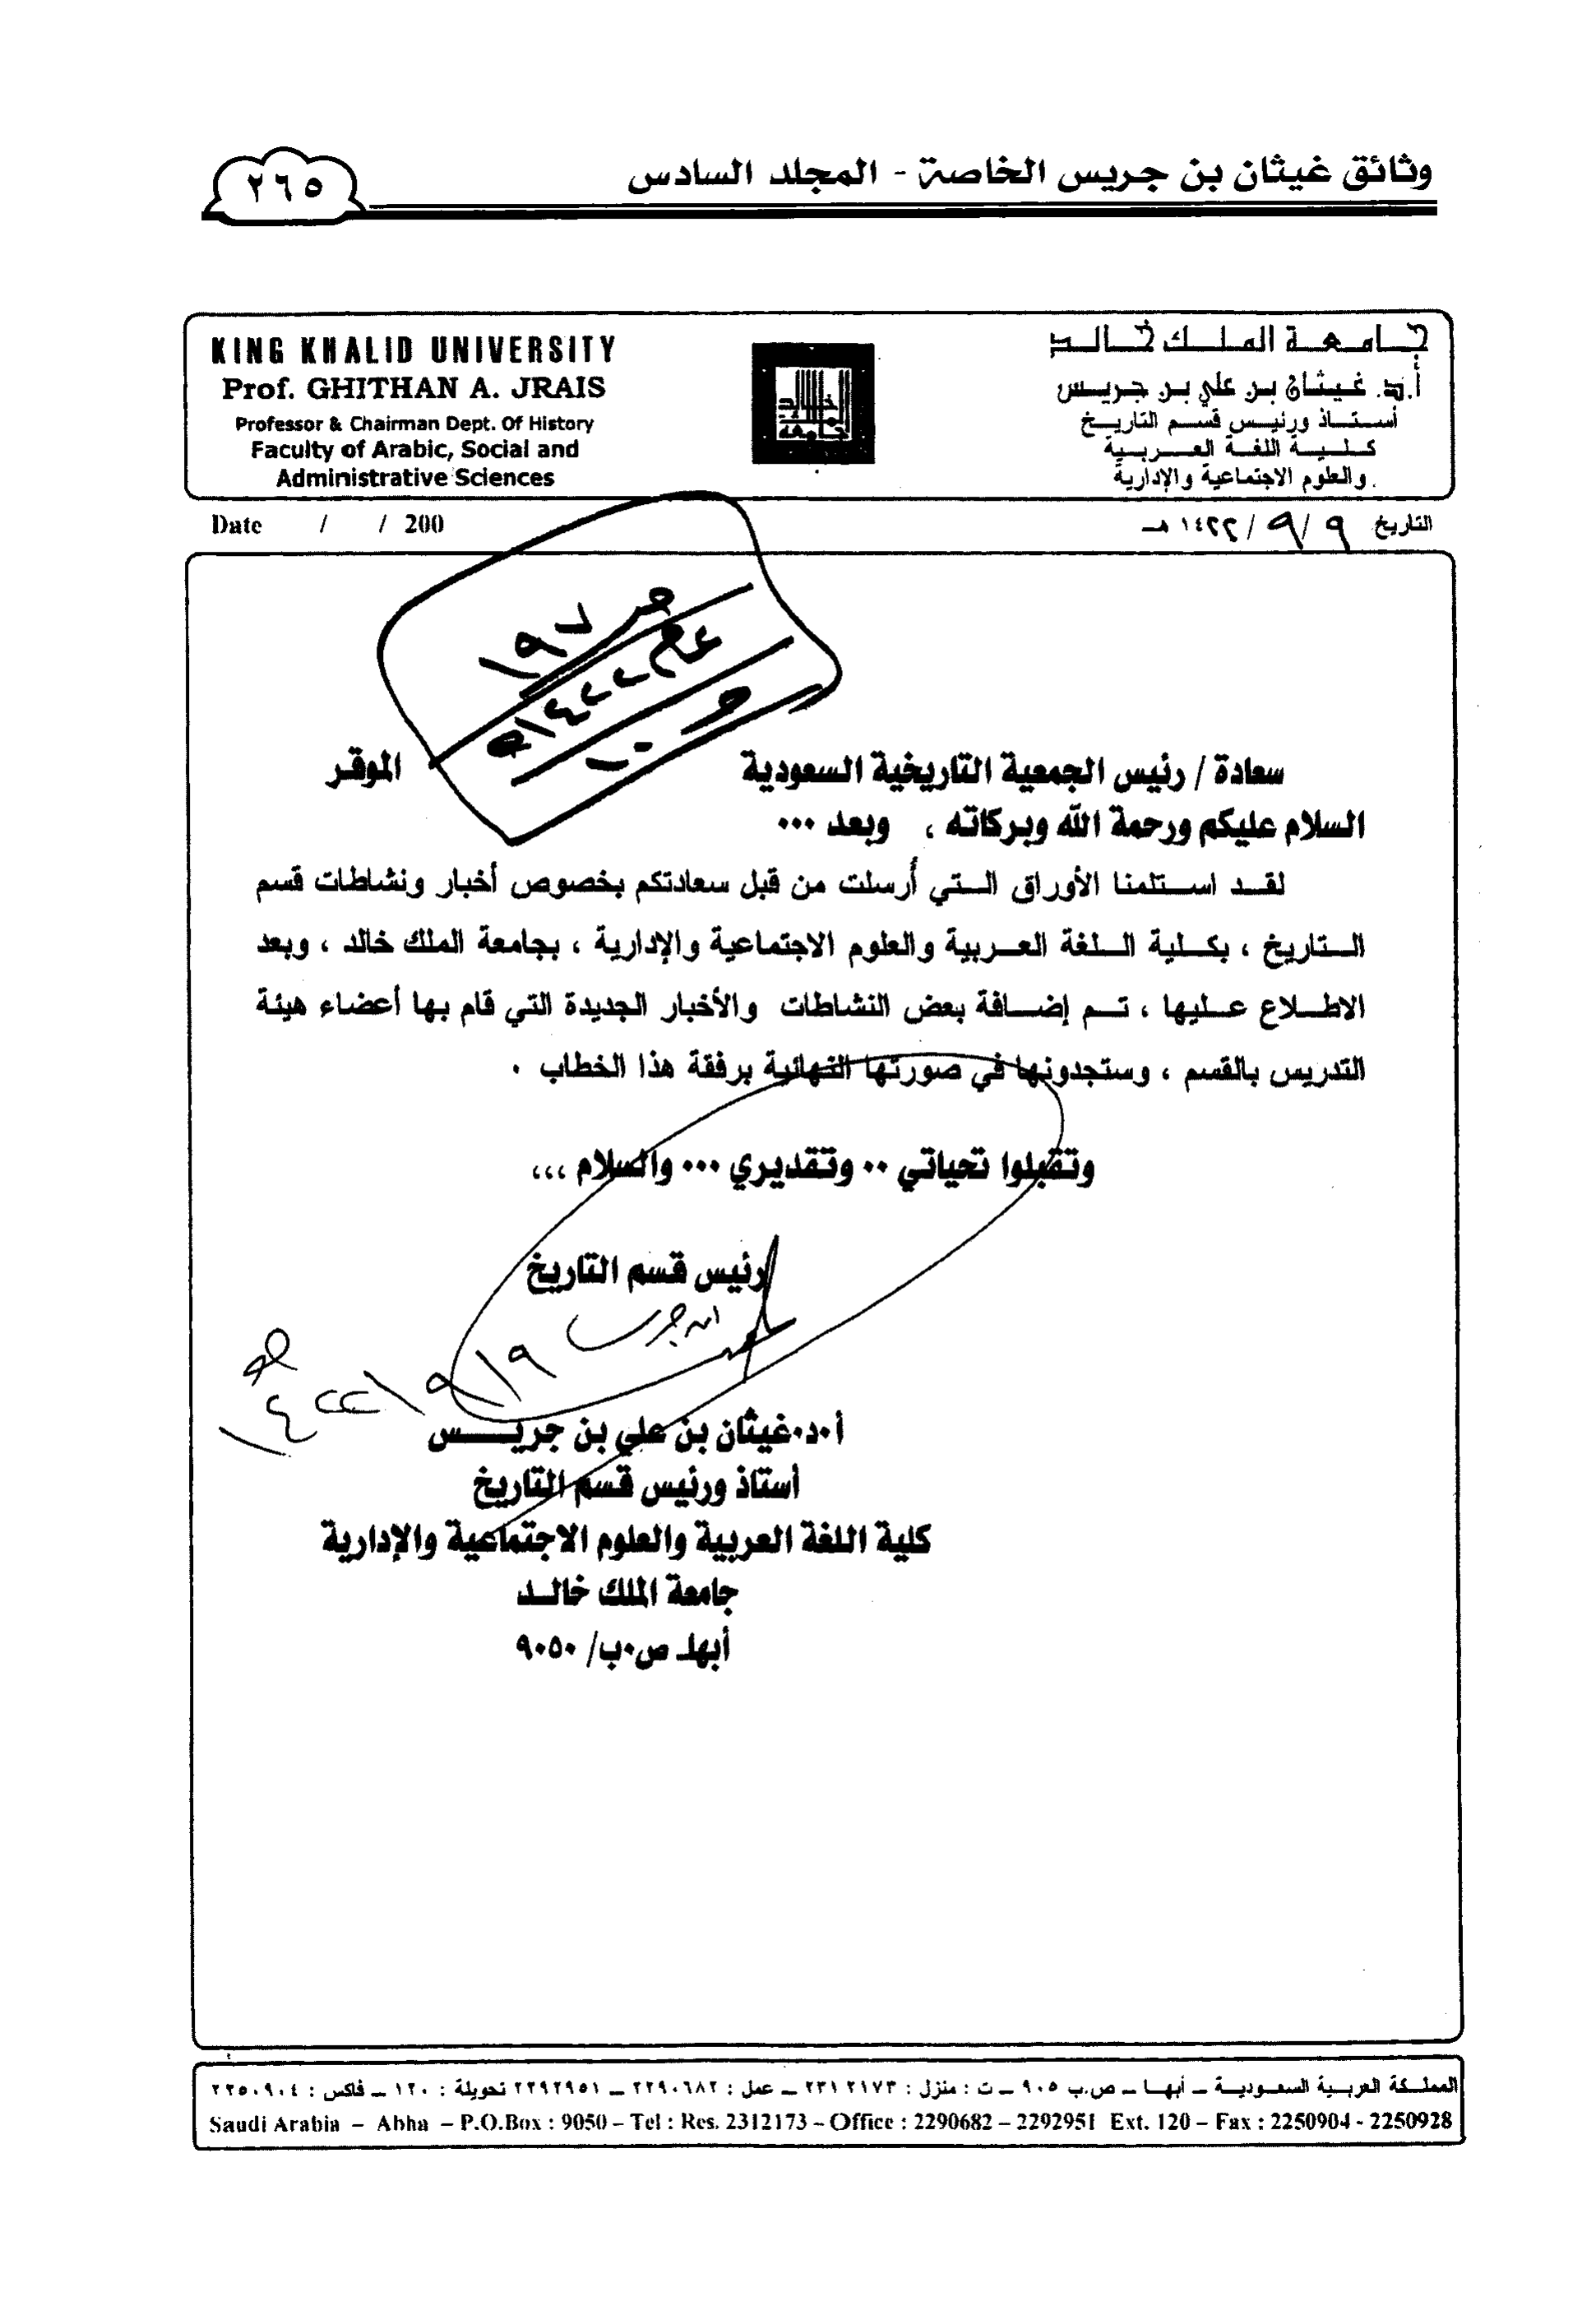 وثائق غيثان بن جريس الخاصة - المجلد السادس
٢٦٥
KING KHALID UNIVERSITY
Prof. GHITHAN A. JRAIS
Professor & Chairman Dept. Of History
Faculty of Arabic, Social and
Administrative Sciences
جامعة الملك خالد
أ.د. غيثان بن علي بن جريس
أستاذ ورئيس قسم التاريخ
كلية اللغة العربية
والعلوم الاجتماعية والإدارية
Date / / 200
التاريخ ٩/٩/١٤٢٢هـ
١٩٧
عام ١٤٢٢هـ
سعادة / رئيس الجمعية التاريخية السعودية الموقر
السلام عليكم ورحمة الله وبركاته ، وبعد ...
لقد استلمنا الأوراق التي أُرسلت من قبل سعادتكم بخصوص أخبار ونشاطات قسم
التاريخ ، بكلية اللغة العربية والعلوم الاجتماعية والإدارية ، بجامعة الملك خالد ، وبعد
الاطلاع عليها ، تم إضافة بعض النشاطات والأخبار الجديدة التي قام بها أعضاء هيئة
التدريس بالقسم ، وستجدونها في صورتها النهائية برفقة هذا الخطاب .
وتقبلوا تحياتي .. وتقديري ... والسلام ,,,
رئيس قسم التاريخ
ابن جريس ٩/٩/١٤٢٢هـ
أ.د.غيثان بن علي بن جريس
أستاذ ورئيس قسم التاريخ
كلية اللغة العربية والعلوم الاجتماعية والإدارية
جامعة الملك خالد
أبها ص.ب/ ٩٠٥٠
المملكة العربية السعودية – أبها – ص.ب ٩٠٥ – ت : منزل : ٢٣١٢١٧٣ – عمل : ٢٢٩٠٦٨٢ – ٢٢٩٢٩٥١ تحويلة : ١٢٠ – فاكس : ٢٢٥٠٩٠٤
Saudi Arabia – Abha – P.O.Box : 9050 – Tel : Res. 2312173 – Office : 2290682 – 2292951 Ext. 120 – Fax : 2250904 - 2250928